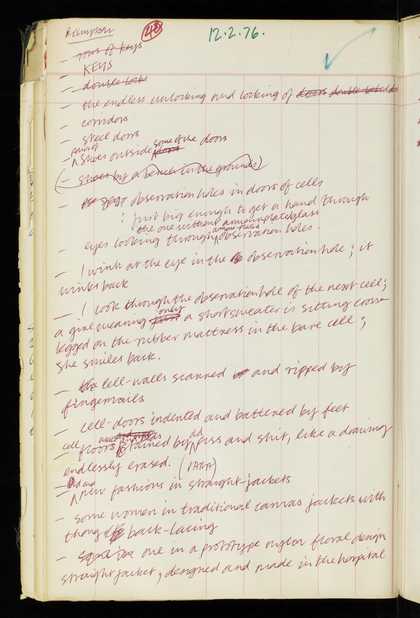 Rampton
48
12.2.76.
— rows of keys
— KEYS
— double lock
— the endless unlocking and locking of doors double locked
— corridors
— steel doors
— pairs of shoes outside some of the doors
(— shoes by a bench in the grounds)
— observation holes in doors of cells
: just big enough to get a hand through
the one without armourplate glass
eyes looking through observation holes.
— I wink at the eye in the observation hole; it
winks back
— I look through the observation hole of the next cell;
a girl wearing only a short sweater is sitting cross-
legged on the rubber mattress in the bare cell;
she smiles back.
— cell-walls scarred and ripped by
fingernails
— cell-doors indented and battered by feet
— cell floors stained by old piss and shit, like a drawing
endlessly erased.
— Old and new fashions in straight-jackets
— some women in traditional canvas jackets with
thonged back-lacing
— one in a prototype nylon floral design
straight jacket, designed and made in the hospital